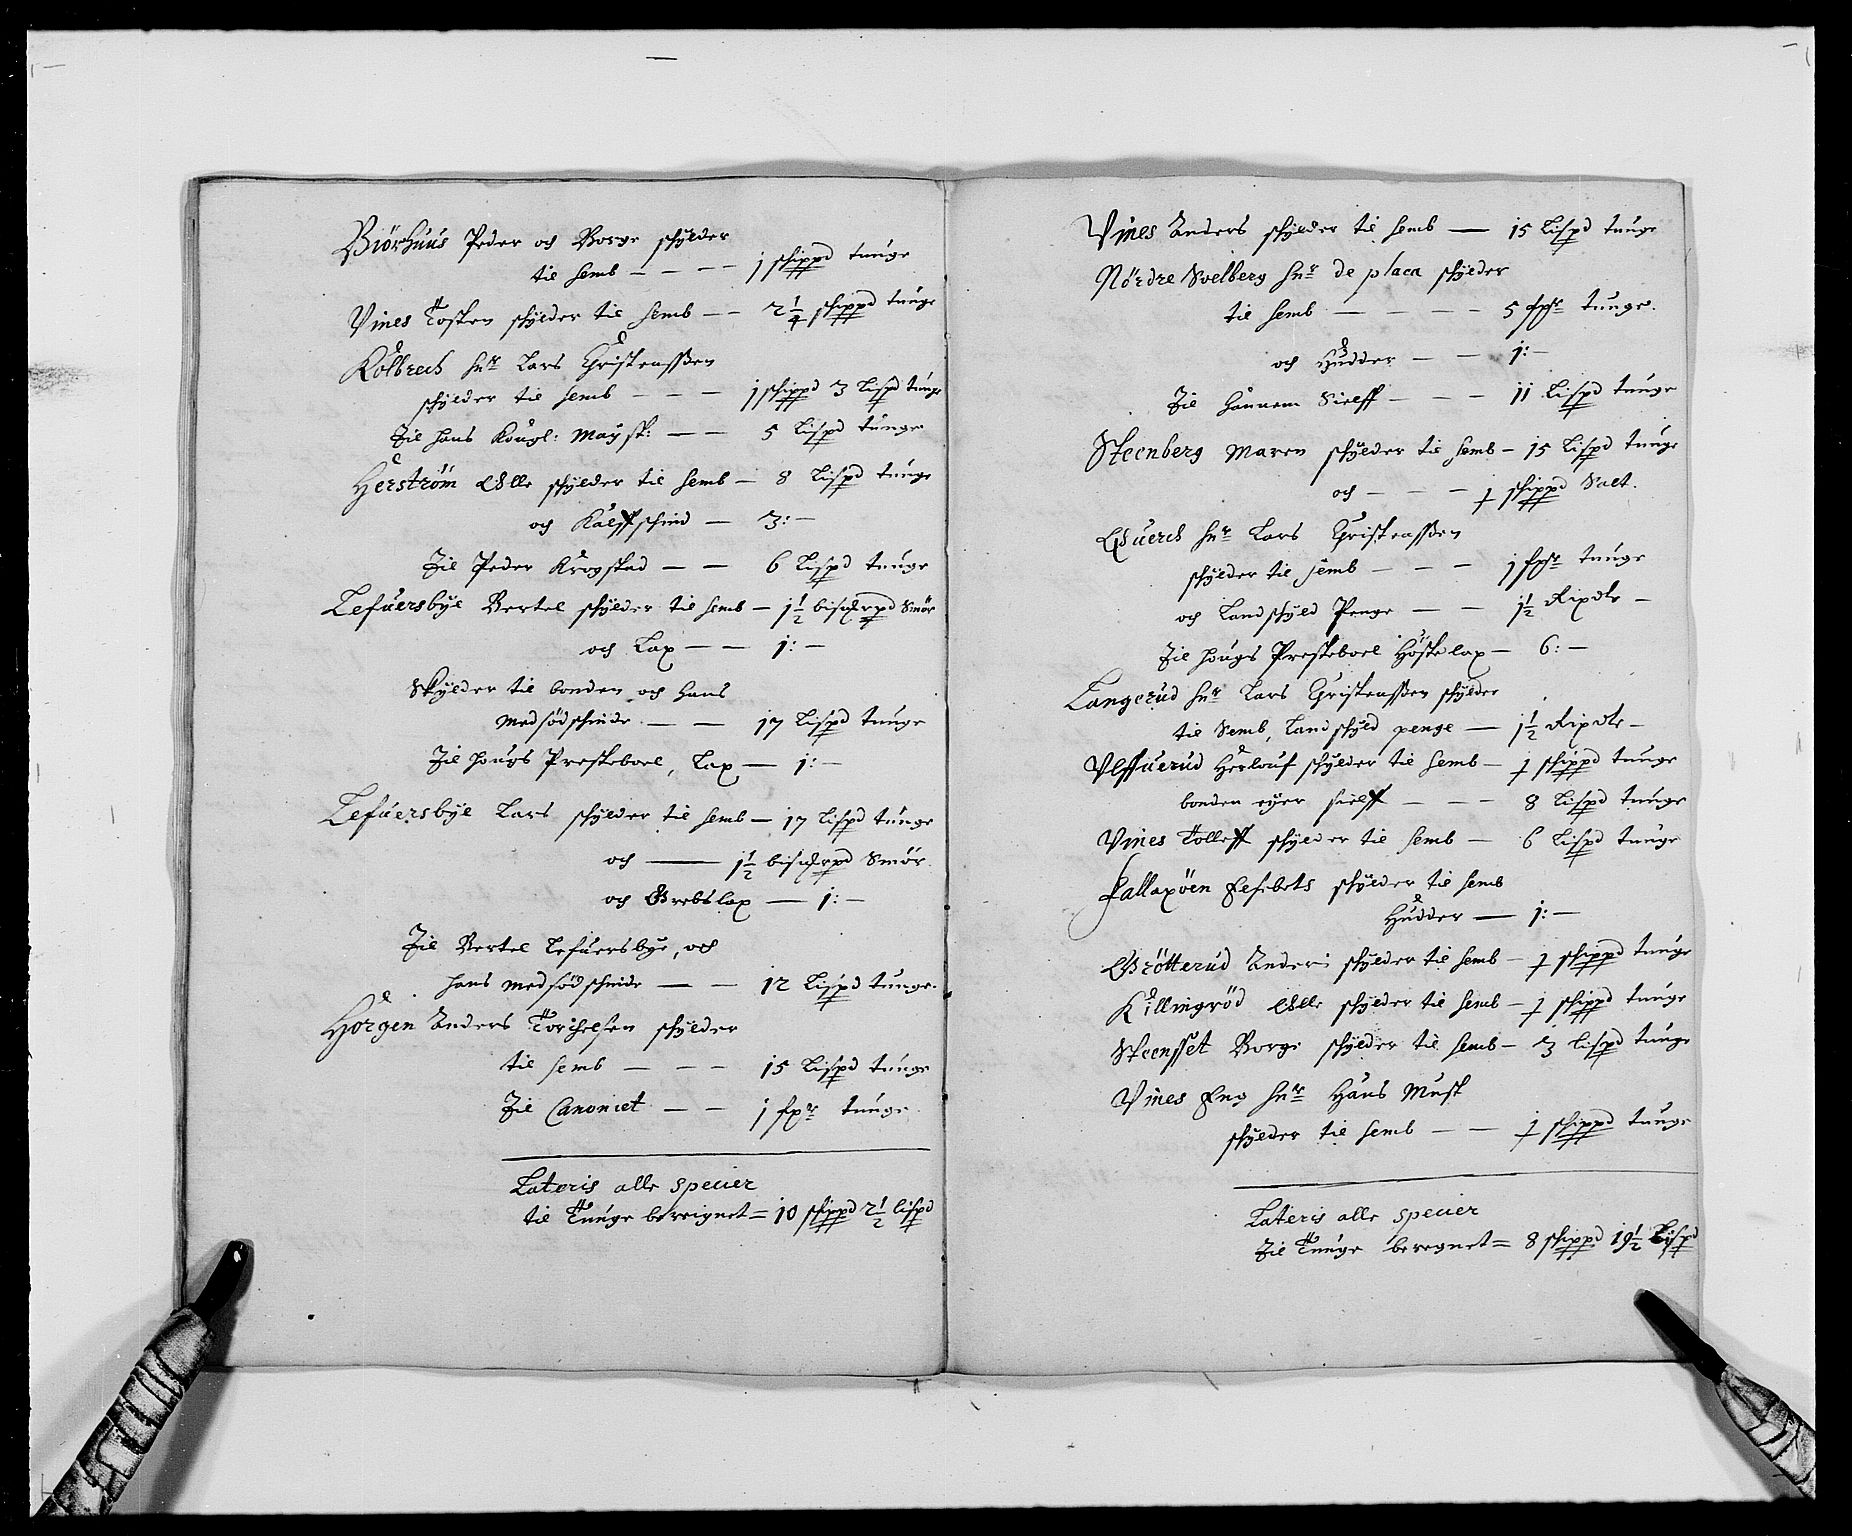 Biörhuus Peder och Borge schÿlder
til Semb - - - - 1 schippd tunge
Vines Tosten schÿlder til Semb - - 2 1/4 schippd tunge
Kolbrech Hr Lars Christenssøn
schÿlder til Semb - - - 1 schippd 3 Lispd tunge
Til Hans Kongl: Maÿst: - - 5 Lispd tunge
Herström Olle schÿlder til Semb - 8 Lispd tunge
och Kalffschind - 3: -
Til Peder Krogstad - - 6 Lispd tunge
Lefuersbÿe Bertel schÿlder til Semb - 1 1/2 bismrpd Smör
och Lax - - 1: -
Schÿlder til bonden och Hans
medsödschinde - - 17 Lispd tunge
Til Hougs Presteboel, Lax - 1: -
Lefuersbÿe Lars schÿlder til Semb - 17 Lispd tunge
och - 1 1/2 bismrpd Smör.
och Grebslax - 1: -
Til Bertel Lefuersbÿe, och
Hans medsödschinde - - 12 Lispd tunge.
Horgen Anders Torchelsen schÿlder
til Semb - - - 15 Lispd tunge
Til Canoniet - - 1 fxr tunge.
Lateris alle specier
til Tunge bereignet = 10 schippd 2 1/2 lispd
Vines Anders schÿlder til Semb - 15 Lispd tunge
Nördre Svelberg Hr de placa schÿlder
til Semb - - - - 5 fxr tunge.
och Hudder - - 1: -
Til Hannem Sielff - - - 11 Lispd tunge
Steenberg Maren schÿlder til Semb - 15 Lispd tunge
och - - - 1 schippd Salt.
Ofuerch Hr Lars Christenssøn
schÿlder til Semb - - - 1 fxr tunge
och Landschÿld Penge - - 1 1/2 Rixdlr -
Til Hougs Presteboel Höstelax - 6: -
Langerud Hr Lars Christenssøn schÿlder
til Semb, Landschÿld penge - 1 1/2 Rixdlr -
Ulffuerud Herlouf schÿlder til Semb - 1 schippd tunge
bonden eyer sielff - - - 8 Lispd tunge
Vines Tolleff schÿlder til Semb - 6 Lispd tunge
Fallaxöen Elsebets schÿlder til Semb
Hudder - 1: -
Grötterud Anders schÿlder til Semb - 1 schippd tunge
Killingröd Olle schÿlder til Semb - 1 schippd tunge
Steensset Borge schÿlder til Semb - 13 lispd tunge
Vines Eng Hr Hans Must
schÿlder til Semb - - 1 schippd tunge
Lateris alle specier
Til Tunge beregnet = 8 schippd 19 1/2 Lispd